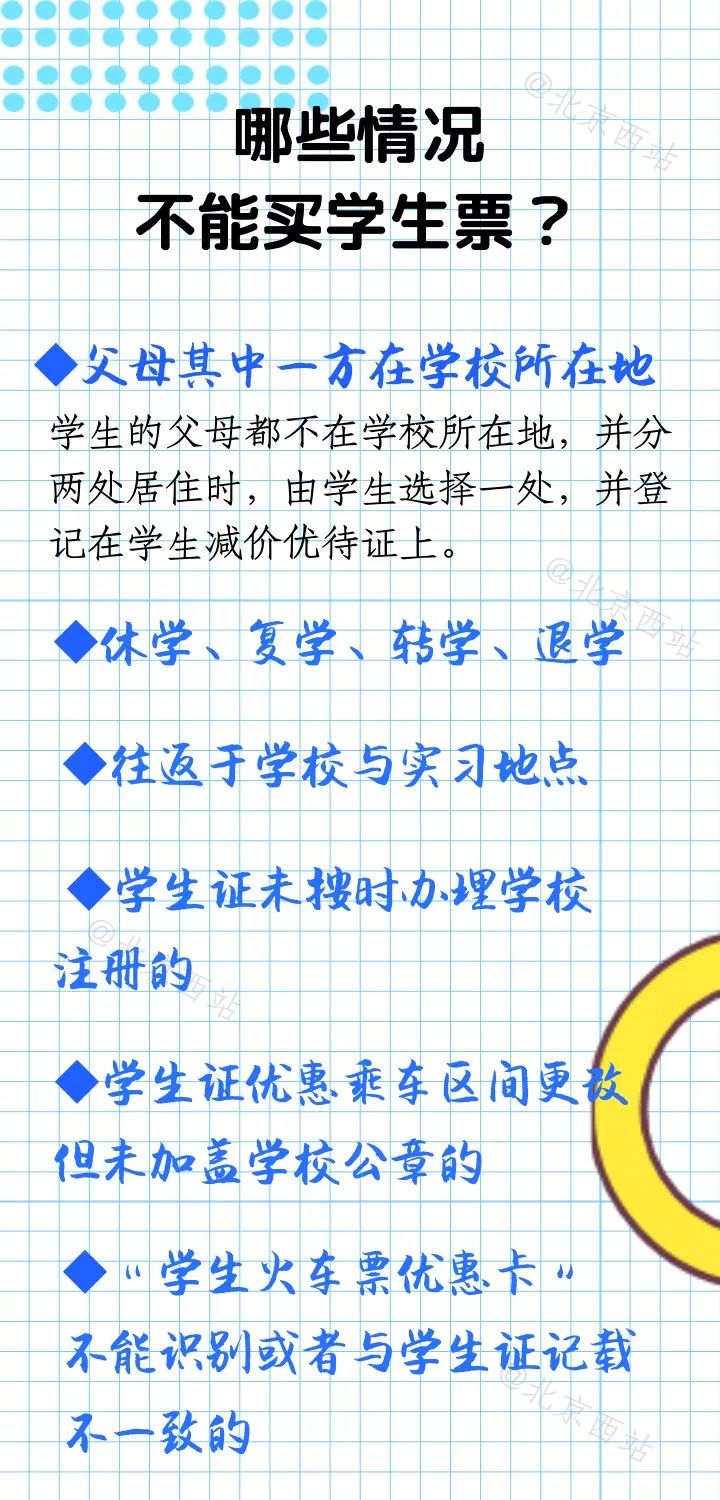 哪些情况
不能买学生票？
@北京西站
◆父母其中一方在学校所在地
学生的父母都不在学校所在地，并分
两处居住时，由学生选择一处，并登
记在学生减价优待证上。
@北京西站
◆休学、复学、转学、退学
◆往返于学校与实习地点
◆学生证未按时办理学校
注册的
@北京西站
◆学生证优惠乘车区间更改
但未加盖学校公章的
◆“学生火车票优惠卡”
不能识别或者与学生证记载
不一致的
@北京西站